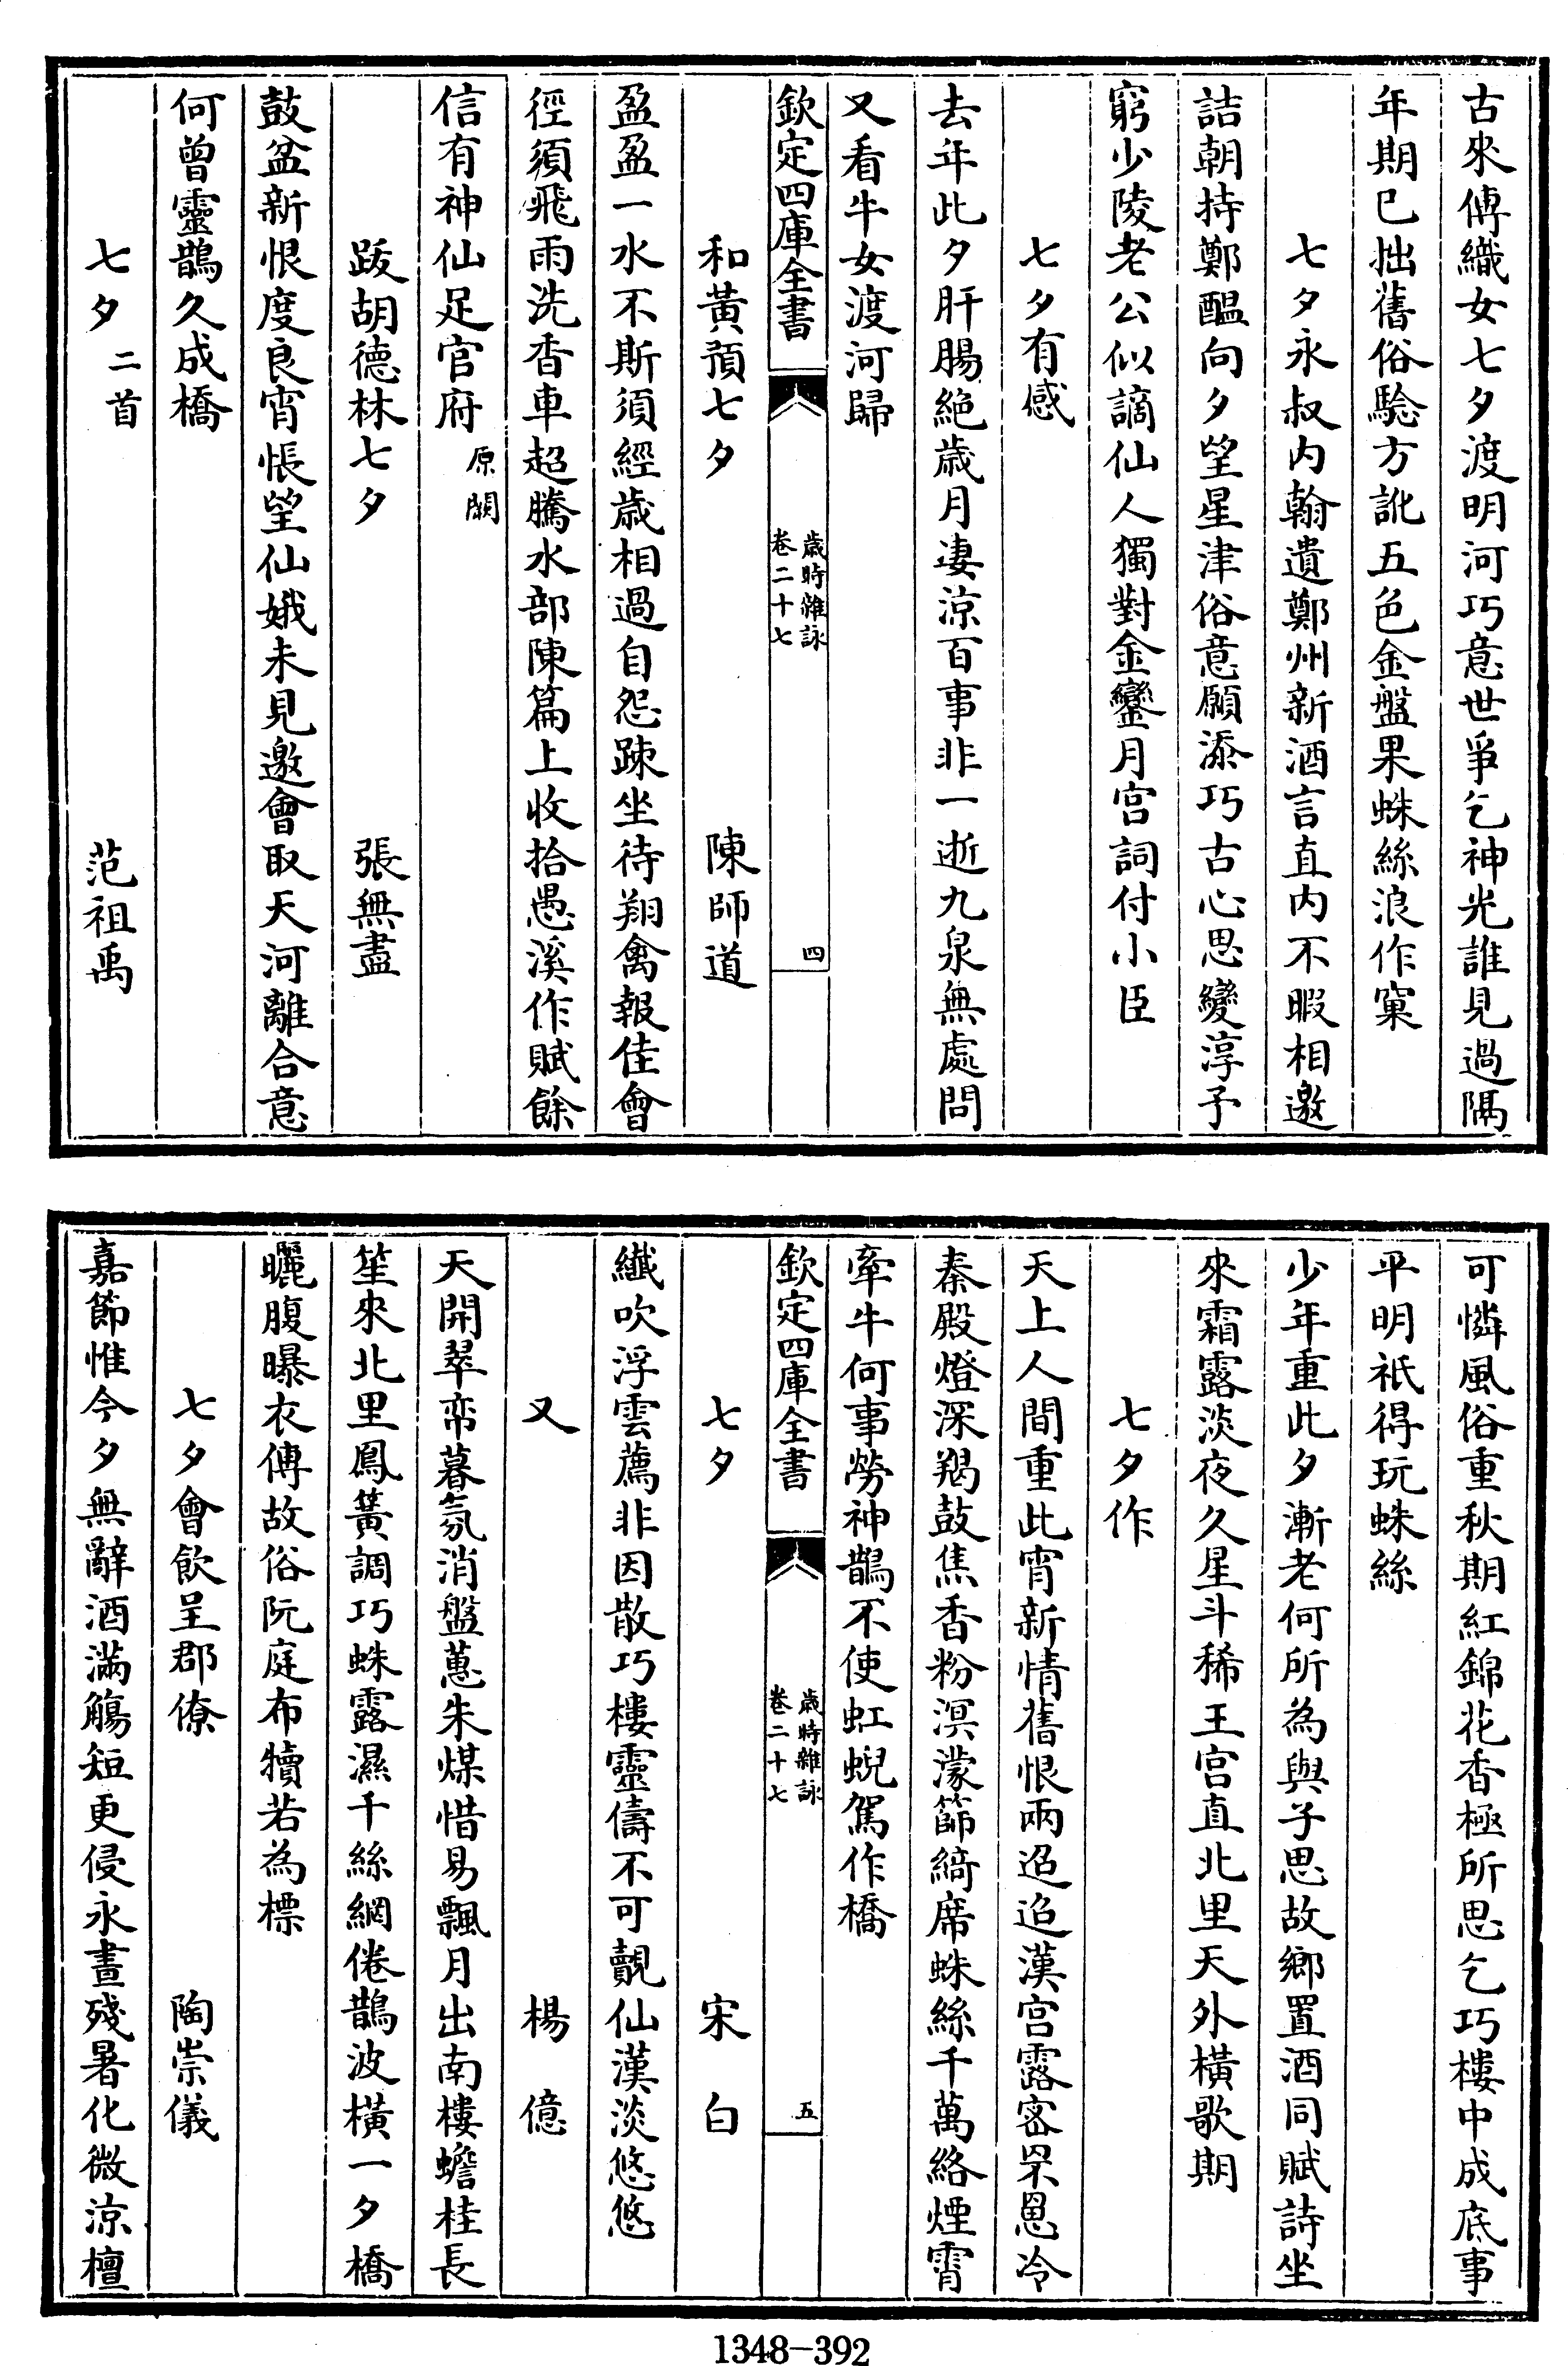 古來傳織女七夕渡明河巧意世爭乞神光誰見過隔
年期已拙舊俗驗方訛五色金盤果蛛絲浪作窠
七夕永叔内翰遺鄭州新酒言直内不暇相邀
詰朝持鄭醖向夕望星津俗意願添巧古心思變淳予
窮少陵老公似謫仙人獨對金鑾月宮詞付小臣
七夕有感
去年此夕肝腸絶歲月凄涼百事非一逝九泉無處問
又看牛女渡河歸
欽定四庫全書
歲時雜詠
卷二十七
四
和黃預七夕 陳師道
盈盈一水不斯須經歲相過自怨踈坐待翔禽報佳會
徑須飛雨洗香車超騰水部陳篇上收拾愚溪作賦餘
信有神仙足官府 原闕
跋胡德林七夕 張無盡
鼓盆新恨度良宵悵望仙娥未見邀會取天河離合意
何曾靈鵲久成橋
七夕 二首 范祖禹
可憐風俗重秋期紅錦花香極所思乞巧樓中成底事
平明祇得玩蛛絲
少年重此夕漸老何所為與子思故鄉置酒同賦詩坐
來霜露淡夜久星斗稀王宮直北里天外橫歌期
七夕作
天上人間重此宵新情舊恨兩迢迢漢宮露密罘罳冷
秦殿燈深羯鼓焦香粉溟濛篩綺席蛛絲千萬絡煙霄
牽牛何事勞神鵲不使虹蜺駕作橋
欽定四庫全書
歲時雜詠
卷二十七
五
七夕 宋白
纎吹浮雲薦非因散巧樓靈儔不可覿仙漢淡悠悠
又 楊億
天開翠帟暮氛消盤蕙朱煤惜易飄月出南樓蟾桂長
笙來北里鳳簧調巧蛛露濕千絲網倦鵲波橫一夕橋
曬腹曝衣傳故俗阮庭布犢若為標
七夕會飲呈郡僚 陶崇儀
嘉節惟今夕無辭酒滿觴短更侵永晝殘暑化微涼檀
1348-392